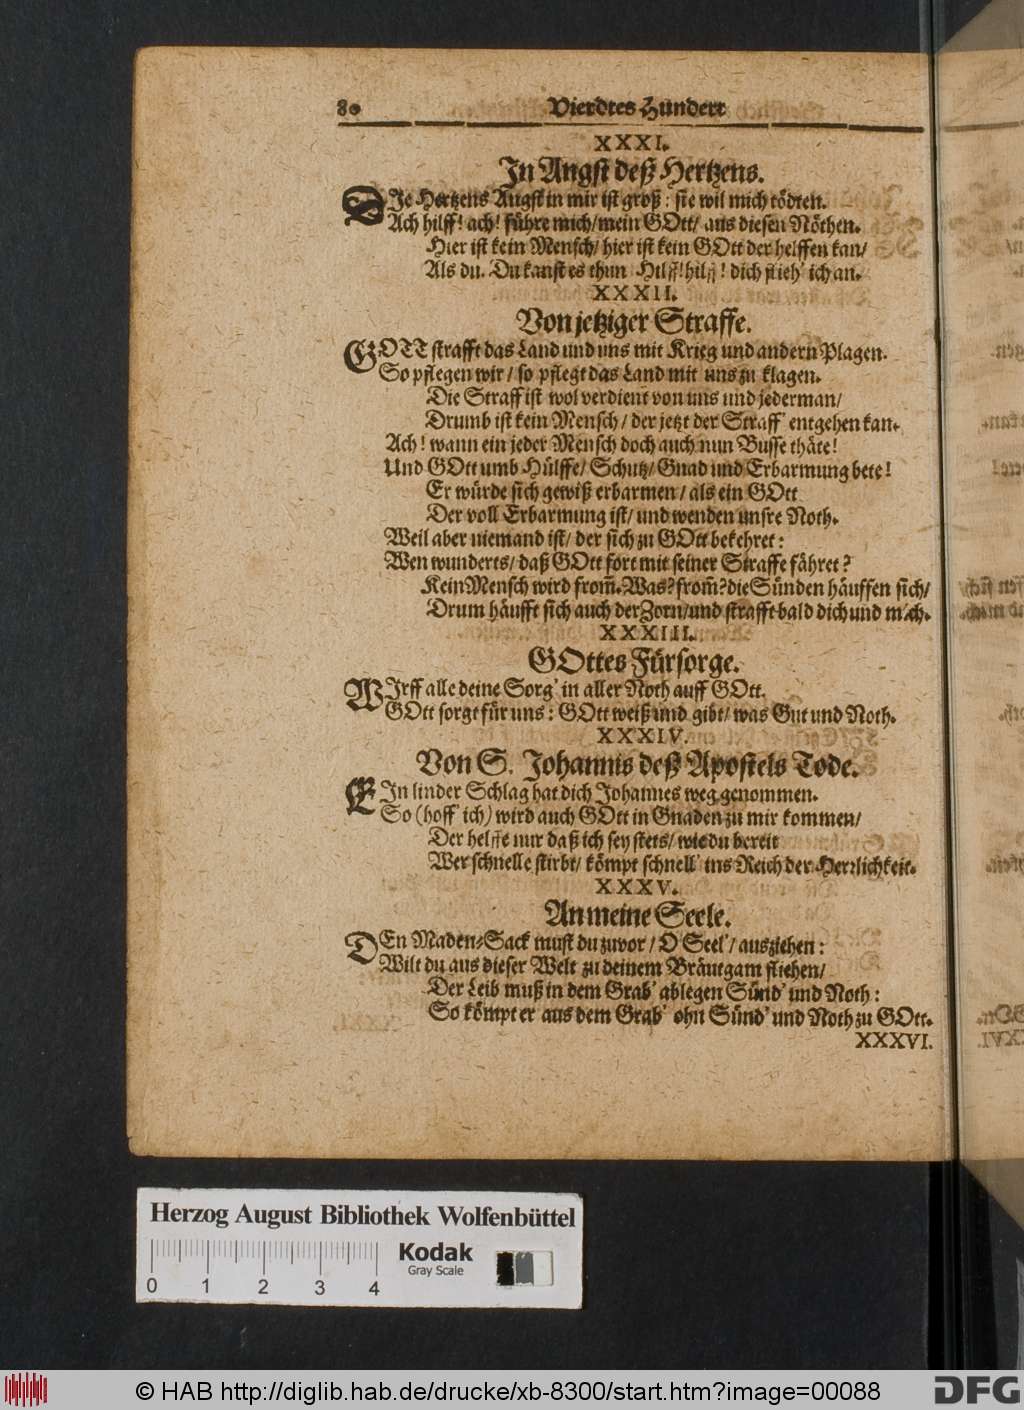 80 Vierdtes Hundert
XXXI.
In Angst deß Hertzens.
DIe Hertzens Angst in mir ist groß: sie wil mich tödten.
Ach hilff! ach! führe mich/ mein GOtt/ aus diesen Nöthen.
Hier ist kein Mensch/ hier ist kein GOtt der helffen kan/
Als du. Du kanst es thun Hilff! hilff! dich flieh' ich an.
XXXII.
Von jetziger Straffe.
GOTT strafft das Land und uns mit Krieg und andern Plagen.
So pflegen wir/ so pflegt das Land mit uns zu klagen.
Die Straff ist wol verdient von uns und jederman/
Drumb ist kein Mensch/ der jetzt der Straff' entgehen kan.
Ach! wann ein jeder Mensch doch auch nun Busse thäte!
Und GOtt umb Hülffe/ Schutz/ Gnad und Erbarmung bete!
Er würde sich gewiß erbarmen/ als ein GOtt
Der voll Erbarmung ist/ und wenden unsre Noth.
Weil aber niemand ist/ der sich zu GOtt bekehret:
Wen wunderts/ daß GOtt fort mit seiner Straffe fähret?
Kein Mensch wird from̃. Was? from̃? die Sünden häuffen sich/
Drum häufft sich auch der Zorn/ und strafft bald dich und mich.
XXXIII.
GOttes Fürsorge.
WIrff alle deine Sorg' in aller Noth auff GOtt.
GOtt sorgt für uns: GOtt weiß und gibt/ was Gut und Noth.
XXXIV.
Von S. Johannis deß Apostels Tode.
EIn linder Schlag hat dich Johannes weg genommen.
So (hoff' ich) wird auch GOtt in Gnaden zu mir kommen/
Der helffe nur daß ich sey stets/ wie du bereit
Wer schnelle stirbt/ kömpt schnell' ins Reich der Herrlichkeit.
XXXV.
An meine Seele.
DEn Maden-Sack must du zuvor/ O Seel'/ ausziehen:
Wilt du aus dieser Welt zu deinem Bräutgam fliehen/
Der Leib muß in dem Grab' ablegen Sünd' und Noth:
So kömpt er aus dem Grab' ohn Sünd' und Noth zu GOtt.
XXXVI.
Herzog August Bibliothek Wolfenbüttel
0 1 2 3 4
Kodak
Gray Scale
© HAB http://diglib.hab.de/drucke/xb-8300/start.htm?image=00088
DFG